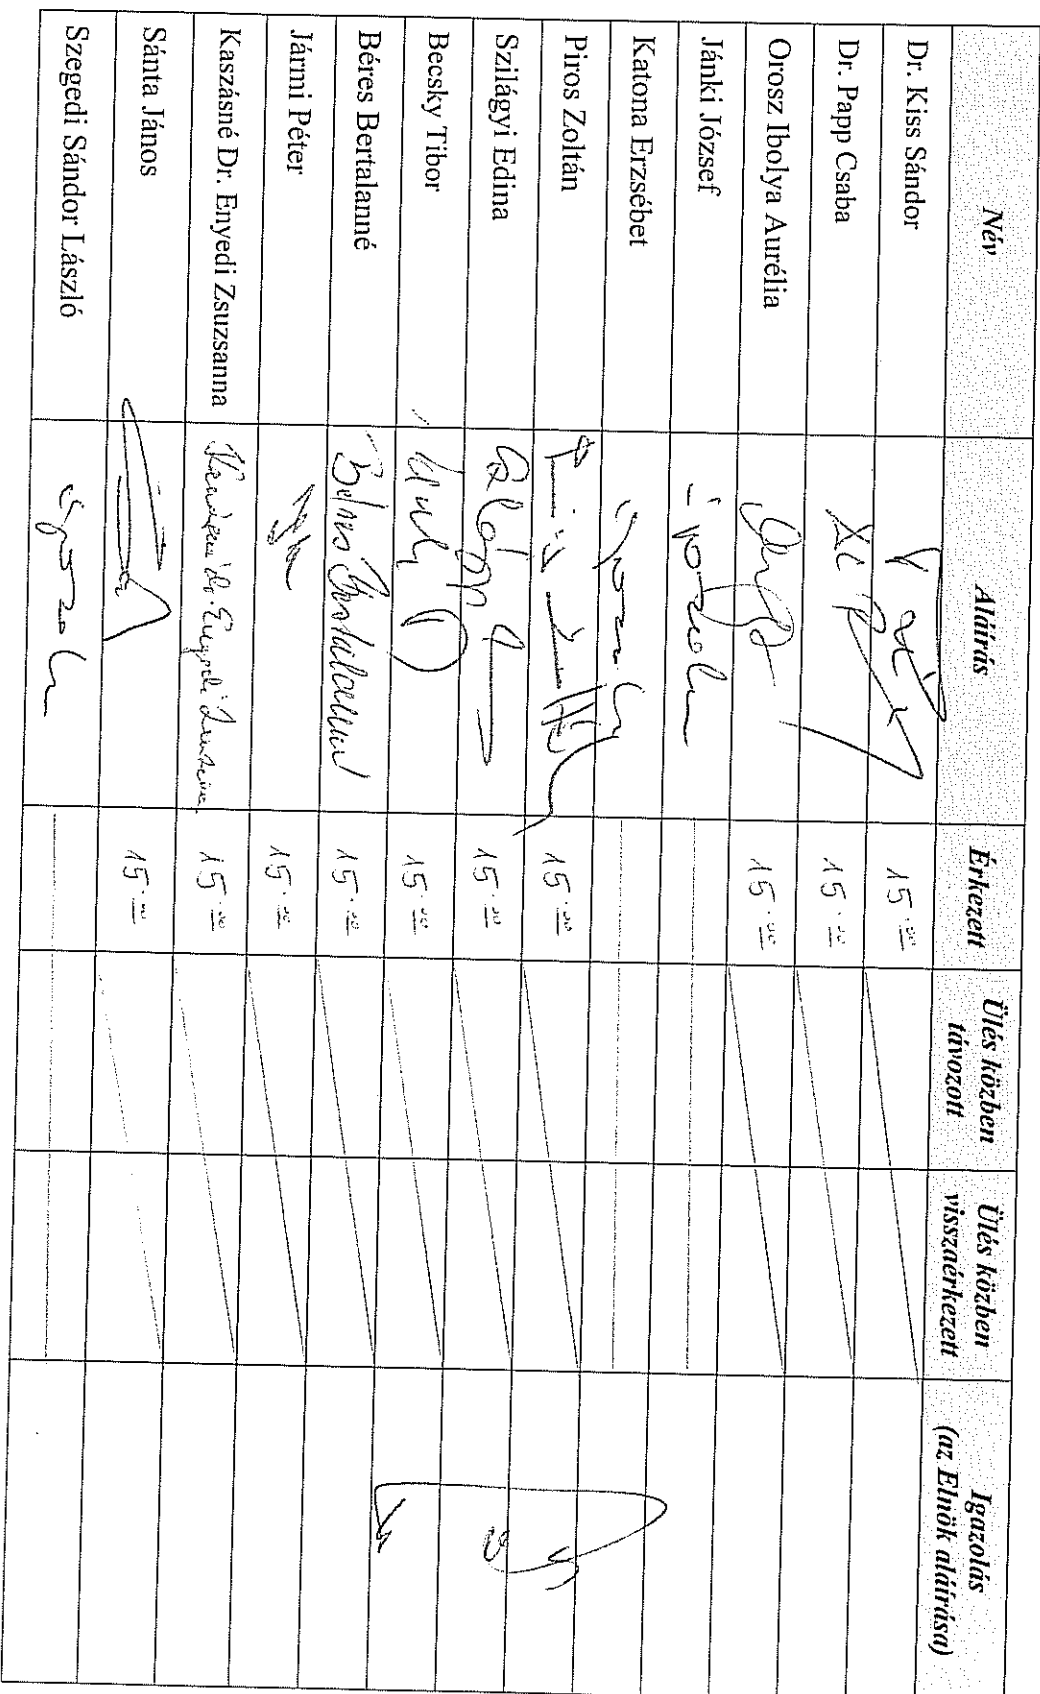 Név Aláírás Érkezett Ülés közben távozott Ülés közben visszaérkezett Igazolás (az Elnök aláírása)
Dr. Kiss Sándor 15.00
Dr. Papp Csaba 15.00
Orosz Ibolya Aurélia 15.00
Jánki József
Katona Erzsébet
Piros Zoltán 15.00
Szilágyi Edina 15.00
Becsky Tibor 15.00
Béres Bertalanné Béres Bertalanné 15.00
Jármi Péter 15.00
Kaszásné Dr. Enyedi Zsuzsanna 15.00
Sánta János 15.00
Szegedi Sándor László